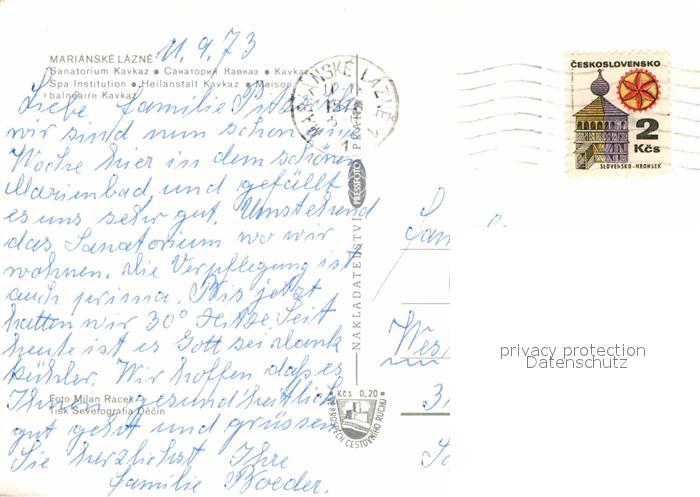 11.9.73
MARIÁNSKÉ LÁZNĚ
Sanatorium Kavkaz • Санаторий Кавказ • Kavkaz
Spa Institution • Heilanstalt Kavkaz • Maison
balnéaire Kavkaz
Liebe Familie
wir sind nun schon eine
Woche hier in dem schönen
Marienbad und gefällt
es uns sehr gut. Umstehend
das Sanatorium wo wir
wohnen. Die Verpflegung ist
auch prima. Bis jetzt
hatten wir 30° Hitze. Seit
heute ist es Gott sei dank
kühler. Wir hoffen daß es
Ihnen gesundheitlich
gut geht und grüssen
Sie herzlichst Ihre
Familie Boeder.
Foto Milan Racek
Tisk Severografia Děčín
NAKLADATELSTVÍ PRESSFOTO PRAHA
MARIÁNSKÉ LÁZNĚ 1
Kčs 0,20
VE PROSPĚCH CESTOVNÍHO RUCHU
ČESKOSLOVENSKO
2
Kčs
SLOVENSKO-HRONSEK
Fam
Wes
3
privacy protection
Datenschutz